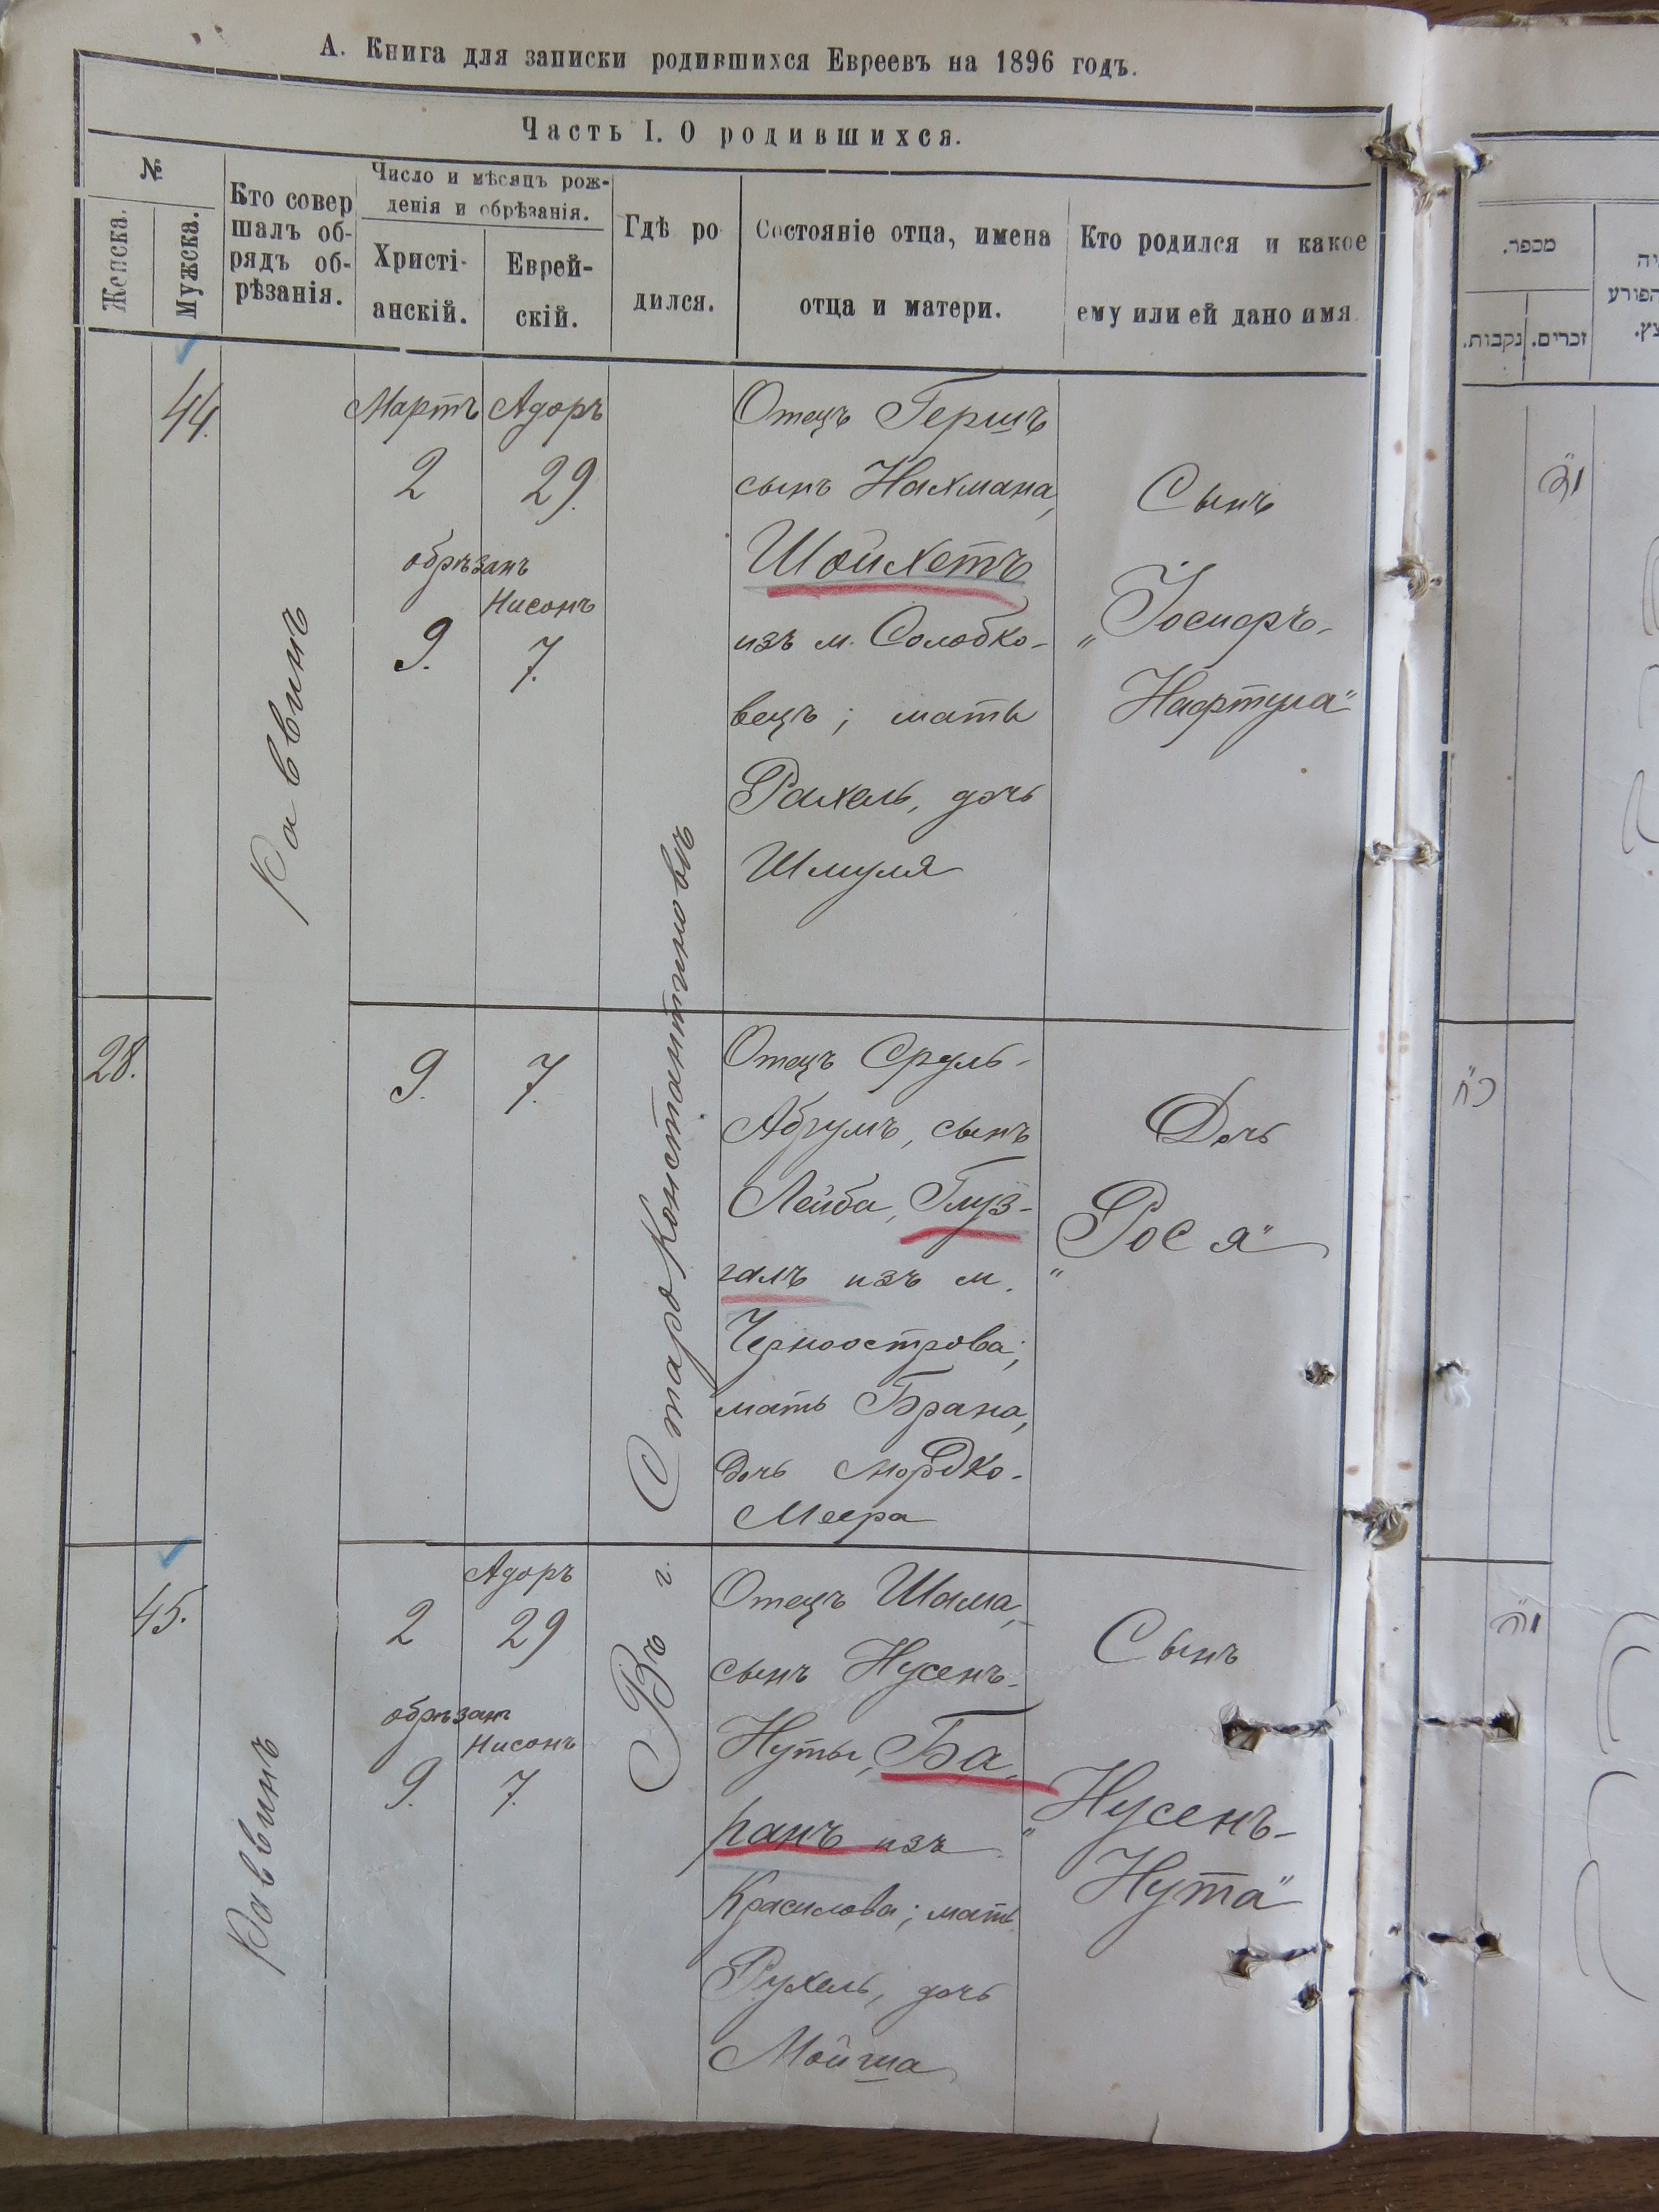 А. Книга для записки родившихся Евреевъ на 1896 годъ.
Часть I. О родившихся.
№
Женска.
Мужска.
Кто совер
шалъ об-
рядъ об-
рѣзанія.
Число и мѣсяцъ рож-
денія и обрѣзанія.
Христі-
анскій.
Еврей-
скій.
Гдѣ ро
дился.
Состояніе отца, имена
отца и матери.
Кто родился и какое
ему или ей дано имя.
44.
Раввинъ
Мартъ
2
обрѣзанъ
9.
Адоръ
29.
Нисонъ
7.
Въ г. Старо Константиновѣ
Отецъ Гершъ
сынъ Нахмана,
Шойхетъ
изъ м. Солобко-
вецъ; мать
Рахель, дочь
Шмуля
Сынъ
„Іосифъ-
Нафтула"
28.
9.
7.
Отецъ Сруль-
Абрумъ, сынъ
Лейба, Глуз-
галъ изъ м.
Черноострова;
мать Брана,
дочь Мордко-
Меера
Дочь
„Рося"
45.
Раввинъ
2
обрѣзанъ
9.
Адоръ
29
Нисонъ
7.
Отецъ Шама,
сынъ Нусенъ-
Нуты, Ба-
ранъ изъ
Красилова; мать
Рухель, дочь
Мойша
Сынъ
„Нусенъ-
Нута"
מכפר.
נקבות.
זכרים.
הפורע
כ"ח